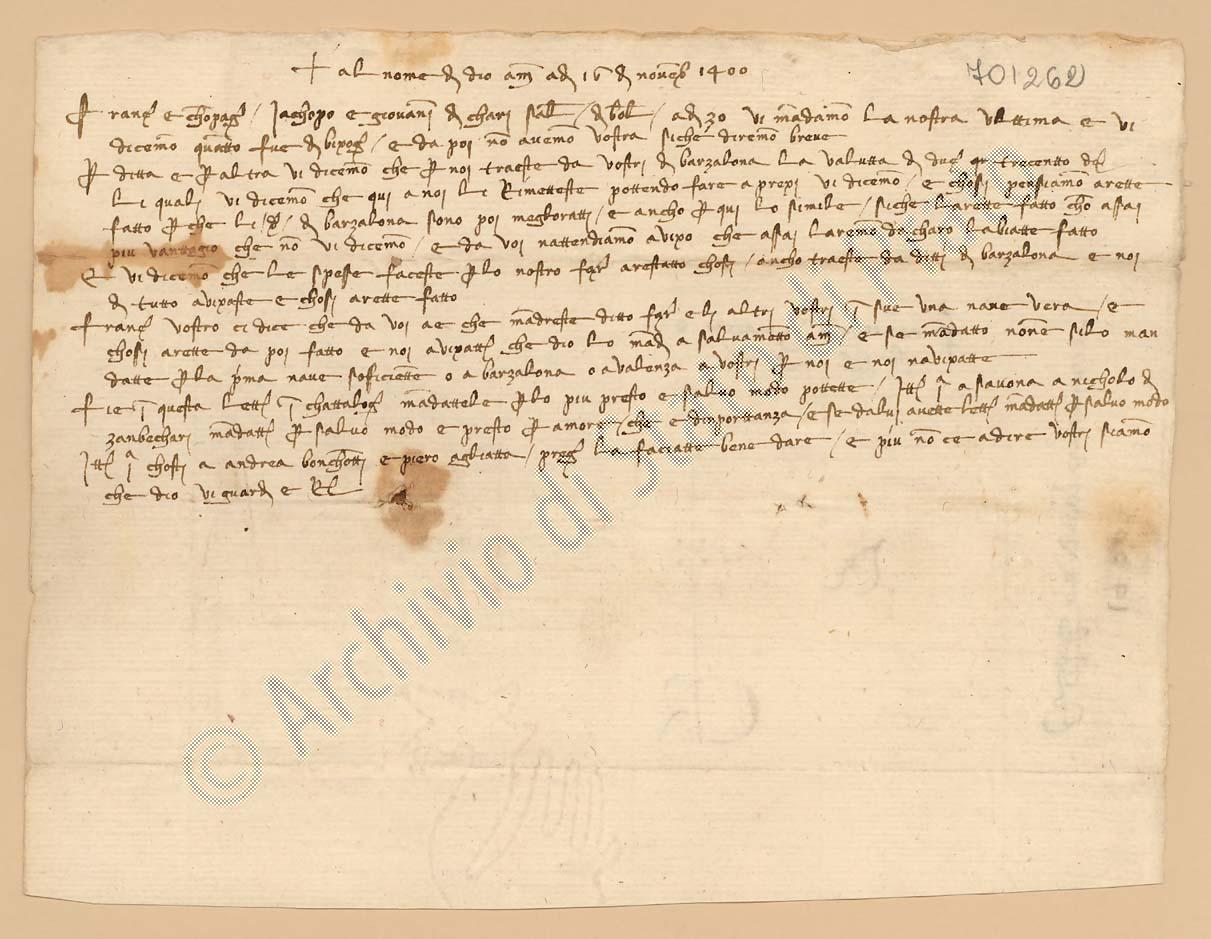 701262
+ al nome di dio amē adi 16 di novēbr 1400
Franc e chōpag / Jachopo e giovanī di chari sal / di bol / adi 30 vi mādamō la nostra ulttima e vi
dicemō quātto fue di bixog / e da poi nō avemō vostra sichē diremō breve
P ditta e p altra vi dicemō che p noi traeste da vostri di barzalona la valutta di duc trecentto
li quali vi dicemō che qui a noi li Rimetteste pottendo fare a prexi vi dicemō / e chosi pensiamō arette
fatto p che li di barzalona sono poi meglioratti / e ancho p qui lo simile / siche l arette fatto chō assai
più vantagio che nō vi dicemō / e da voi n attendiamō avixo che assai l aremō da charo l abiatte fatto
E vi dicemō che le spesse faceste p lo nostro arestatto chosti / ancho traeste da ditti di barzalona e noi
di tutto avixaste e chosi arette fatto
Franc vostro ci dice che da voi ae che mādreste ditto e li altri vostri ī sue una nave vera / e
chosi arette da poi fatto e noi avixatti che dio lo mādi a salvamētto amē / e se mādatto none si lo man
datte p la pma nave soficiētte o a barzalona o a valenza a vostri p noi e noi n avixatte
Fie ī questa lett ī chattalog mādattele p lo più presto e salvo modo pottette / Itt ī a savona a nicholo di
zanbechari mādatt p salvo modo e presto p amore / che e d inporttanza / e se da lui avette lett mādatt p salvo modo
Itt ī chosti a andrea bonchōtti e piero agliatta / preg la faciatte bene dare / e più nō ce a dire vostri siamō
che dio vi guardi e
© Archivio di Stato di Prato